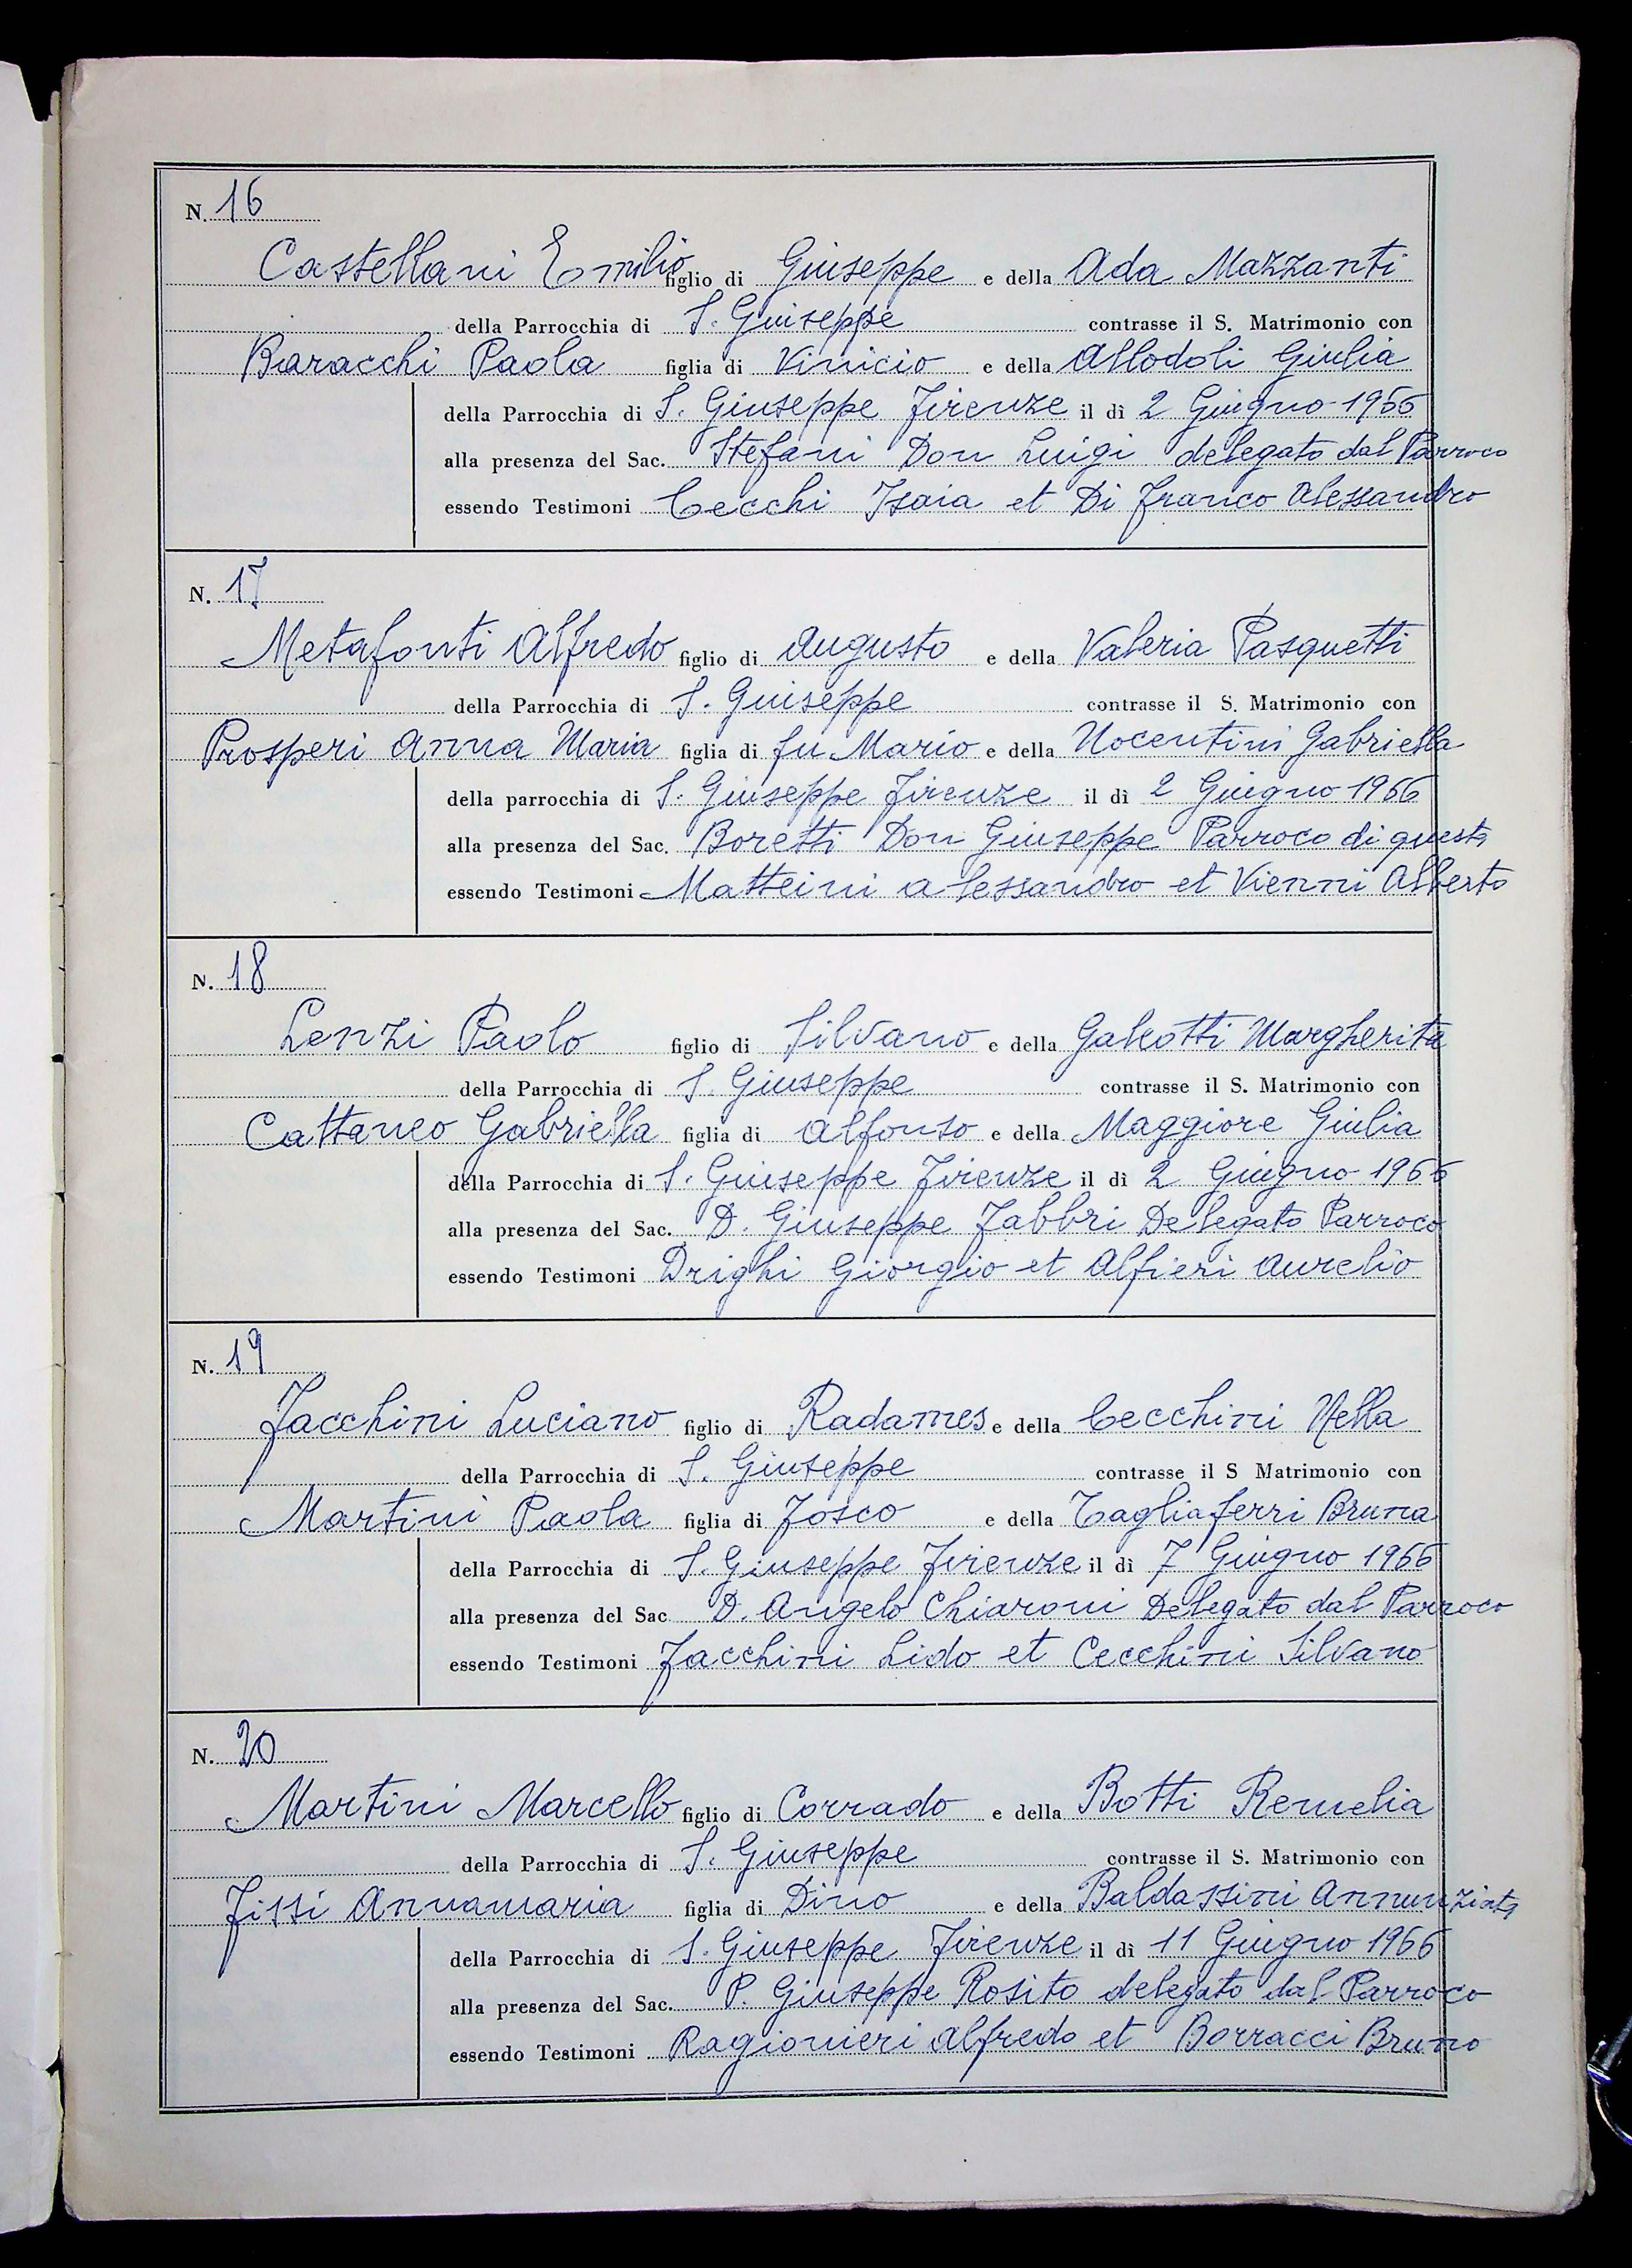 N. 16
Castellani Emilio figlio di Giuseppe e della Ada Mazzanti
della Parrocchia di S. Giuseppe contrasse il S. Matrimonio con
Baracchi Paola figlia di Vinicio e della Allodoli Giulia
della Parrocchia di S. Giuseppe Firenze il dì 2 Giugno 1966
alla presenza del Sac. Stefani Don Luigi delegato dal Parroco
essendo Testimoni Cecchi Isaia et Di Franco Alessandro
N. 17
Metafonti Alfredo figlio di Augusto e della Valeria Pasquetti
della Parrocchia di S. Giuseppe contrasse il S. Matrimonio con
Prosperi Anna Maria figlia di fu Mario e della Nocentini Gabriella
della parrocchia di S. Giuseppe Firenze il dì 2 Giugno 1966
alla presenza del Sac. Boretti Don Giuseppe Parroco di questa
essendo Testimoni Matteini Alessandro et Vienni Alberto
N. 18
Lenzi Paolo figlio di Silvano e della Galeotti Margherita
della Parrocchia di S. Giuseppe contrasse il S. Matrimonio con
Cattaneo Gabriella figlia di Alfonso e della Maggiore Giulia
della Parrocchia di S. Giuseppe Firenze il dì 2 Giugno 1966
alla presenza del Sac. D. Giuseppe Fabbri Delegato Parroco
essendo Testimoni Drighi Giorgio et Alfieri Aurelio
N. 19
Facchini Luciano figlio di Radames e della Cecchini Nella
della Parrocchia di S. Giuseppe contrasse il S Matrimonio con
Martini Paola figlia di Fosco e della Tagliaferri Bruna
della Parrocchia di S. Giuseppe Firenze il dì 7 Giugno 1966
alla presenza del Sac D. Angelo Chiaroni Delegato dal Parroco
essendo Testimoni Facchini Lido et Cecchini Silvano
N. 20
Martini Marcello figlio di Corrado e della Botti Remelia
della Parrocchia di S. Giuseppe contrasse il S. Matrimonio con
Fissi Annamaria figlia di Dino e della Baldassini Annunziata
della Parrocchia di S. Giuseppe Firenze il dì 11 Giugno 1966
alla presenza del Sac. P. Giuseppe Rosito delegato dal Parroco
essendo Testimoni Ragionieri Alfredo et Borracci Bruno